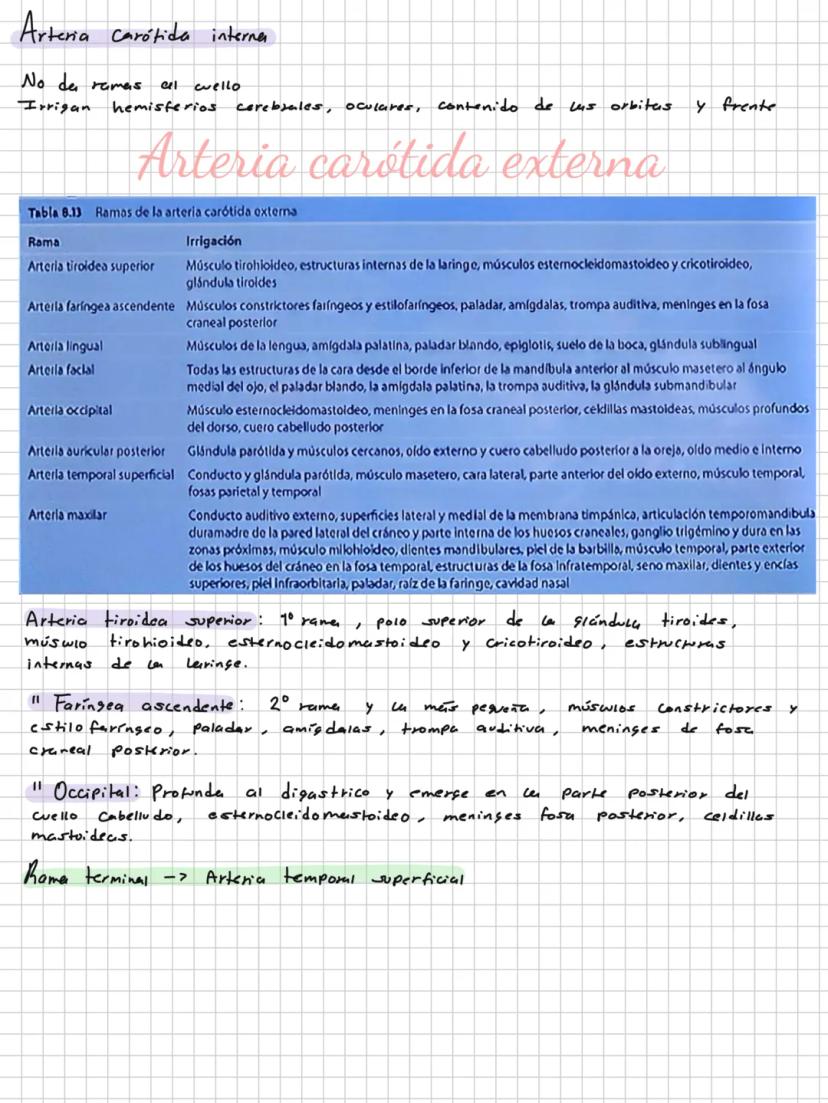 Arteria carótida interna
No da ramas al cuello
Irrigan hemisferios cerebrales, oculares, contenido de las orbitas y frente
Arteria carótida externa
Tabla 8.13 Ramas de la arteria carótida externa
Rama Irrigación
Arteria tiroidea superior Músculo tirohioideo, estructuras internas de la laringe, músculos esternocleidomastoideo y cricotiroideo,
glándula tiroides
Arteria faríngea ascendente Músculos constrictores faríngeos y estilofaríngeos, paladar, amígdalas, trompa auditiva, meninges en la fosa
craneal posterior
Arteria lingual Músculos de la lengua, amígdala palatina, paladar blando, epiglotis, suelo de la boca, glándula sublingual
Arteria facial Todas las estructuras de la cara desde el borde inferior de la mandíbula anterior al músculo masetero al ángulo
medial del ojo, el paladar blando, la amígdala palatina, la trompa auditiva, la glándula submandibular
Arteria occipital Músculo esternocleidomastoideo, meninges en la fosa craneal posterior, celdillas mastoideas, músculos profundos
del dorso, cuero cabelludo posterior
Arteria auricular posterior Glándula parótida y músculos cercanos, oído externo y cuero cabelludo posterior a la oreja, oído medio e interno
Arteria temporal superficial Conducto y glándula parótida, músculo masetero, cara lateral, parte anterior del oído externo, músculo temporal,
fosas parietal y temporal
Arteria maxilar Conducto auditivo externo, superficies lateral y medial de la membrana timpánica, articulación temporomandibula
duramadre de la pared lateral del cráneo y parte interna de los huesos craneales, ganglio trigémino y dura en las
zonas próximas, músculo milohioideo, dientes mandibulares, piel de la barbilla, músculo temporal, parte exterior
de los huesos del cráneo en la fosa temporal, estructuras de la fosa infratemporal, seno maxilar, dientes y encías
superiores, piel infraorbitaria, paladar, raíz de la faringe, cavidad nasal
Arteria tiroidea superior: 1º rama, polo superior de la glándula tiroides,
músculo tirohioideo, esternocleidomastoideo y cricotiroideo, estructuras
internas de la laringe.
" Faríngea ascendente: 2º rama y la más pequeña, músculos constrictores y
estilo faríngeo, paladar, amígdalas, trompa auditiva, meninges de fosa
craneal posterior.
" Occipital: Profunda al digastrico y emerge en la parte posterior del
cuello cabelludo, esternocleidomastoideo, meninges fosa posterior, celdillas
mastoideas.
Rama terminal -> Arteria temporal superficial